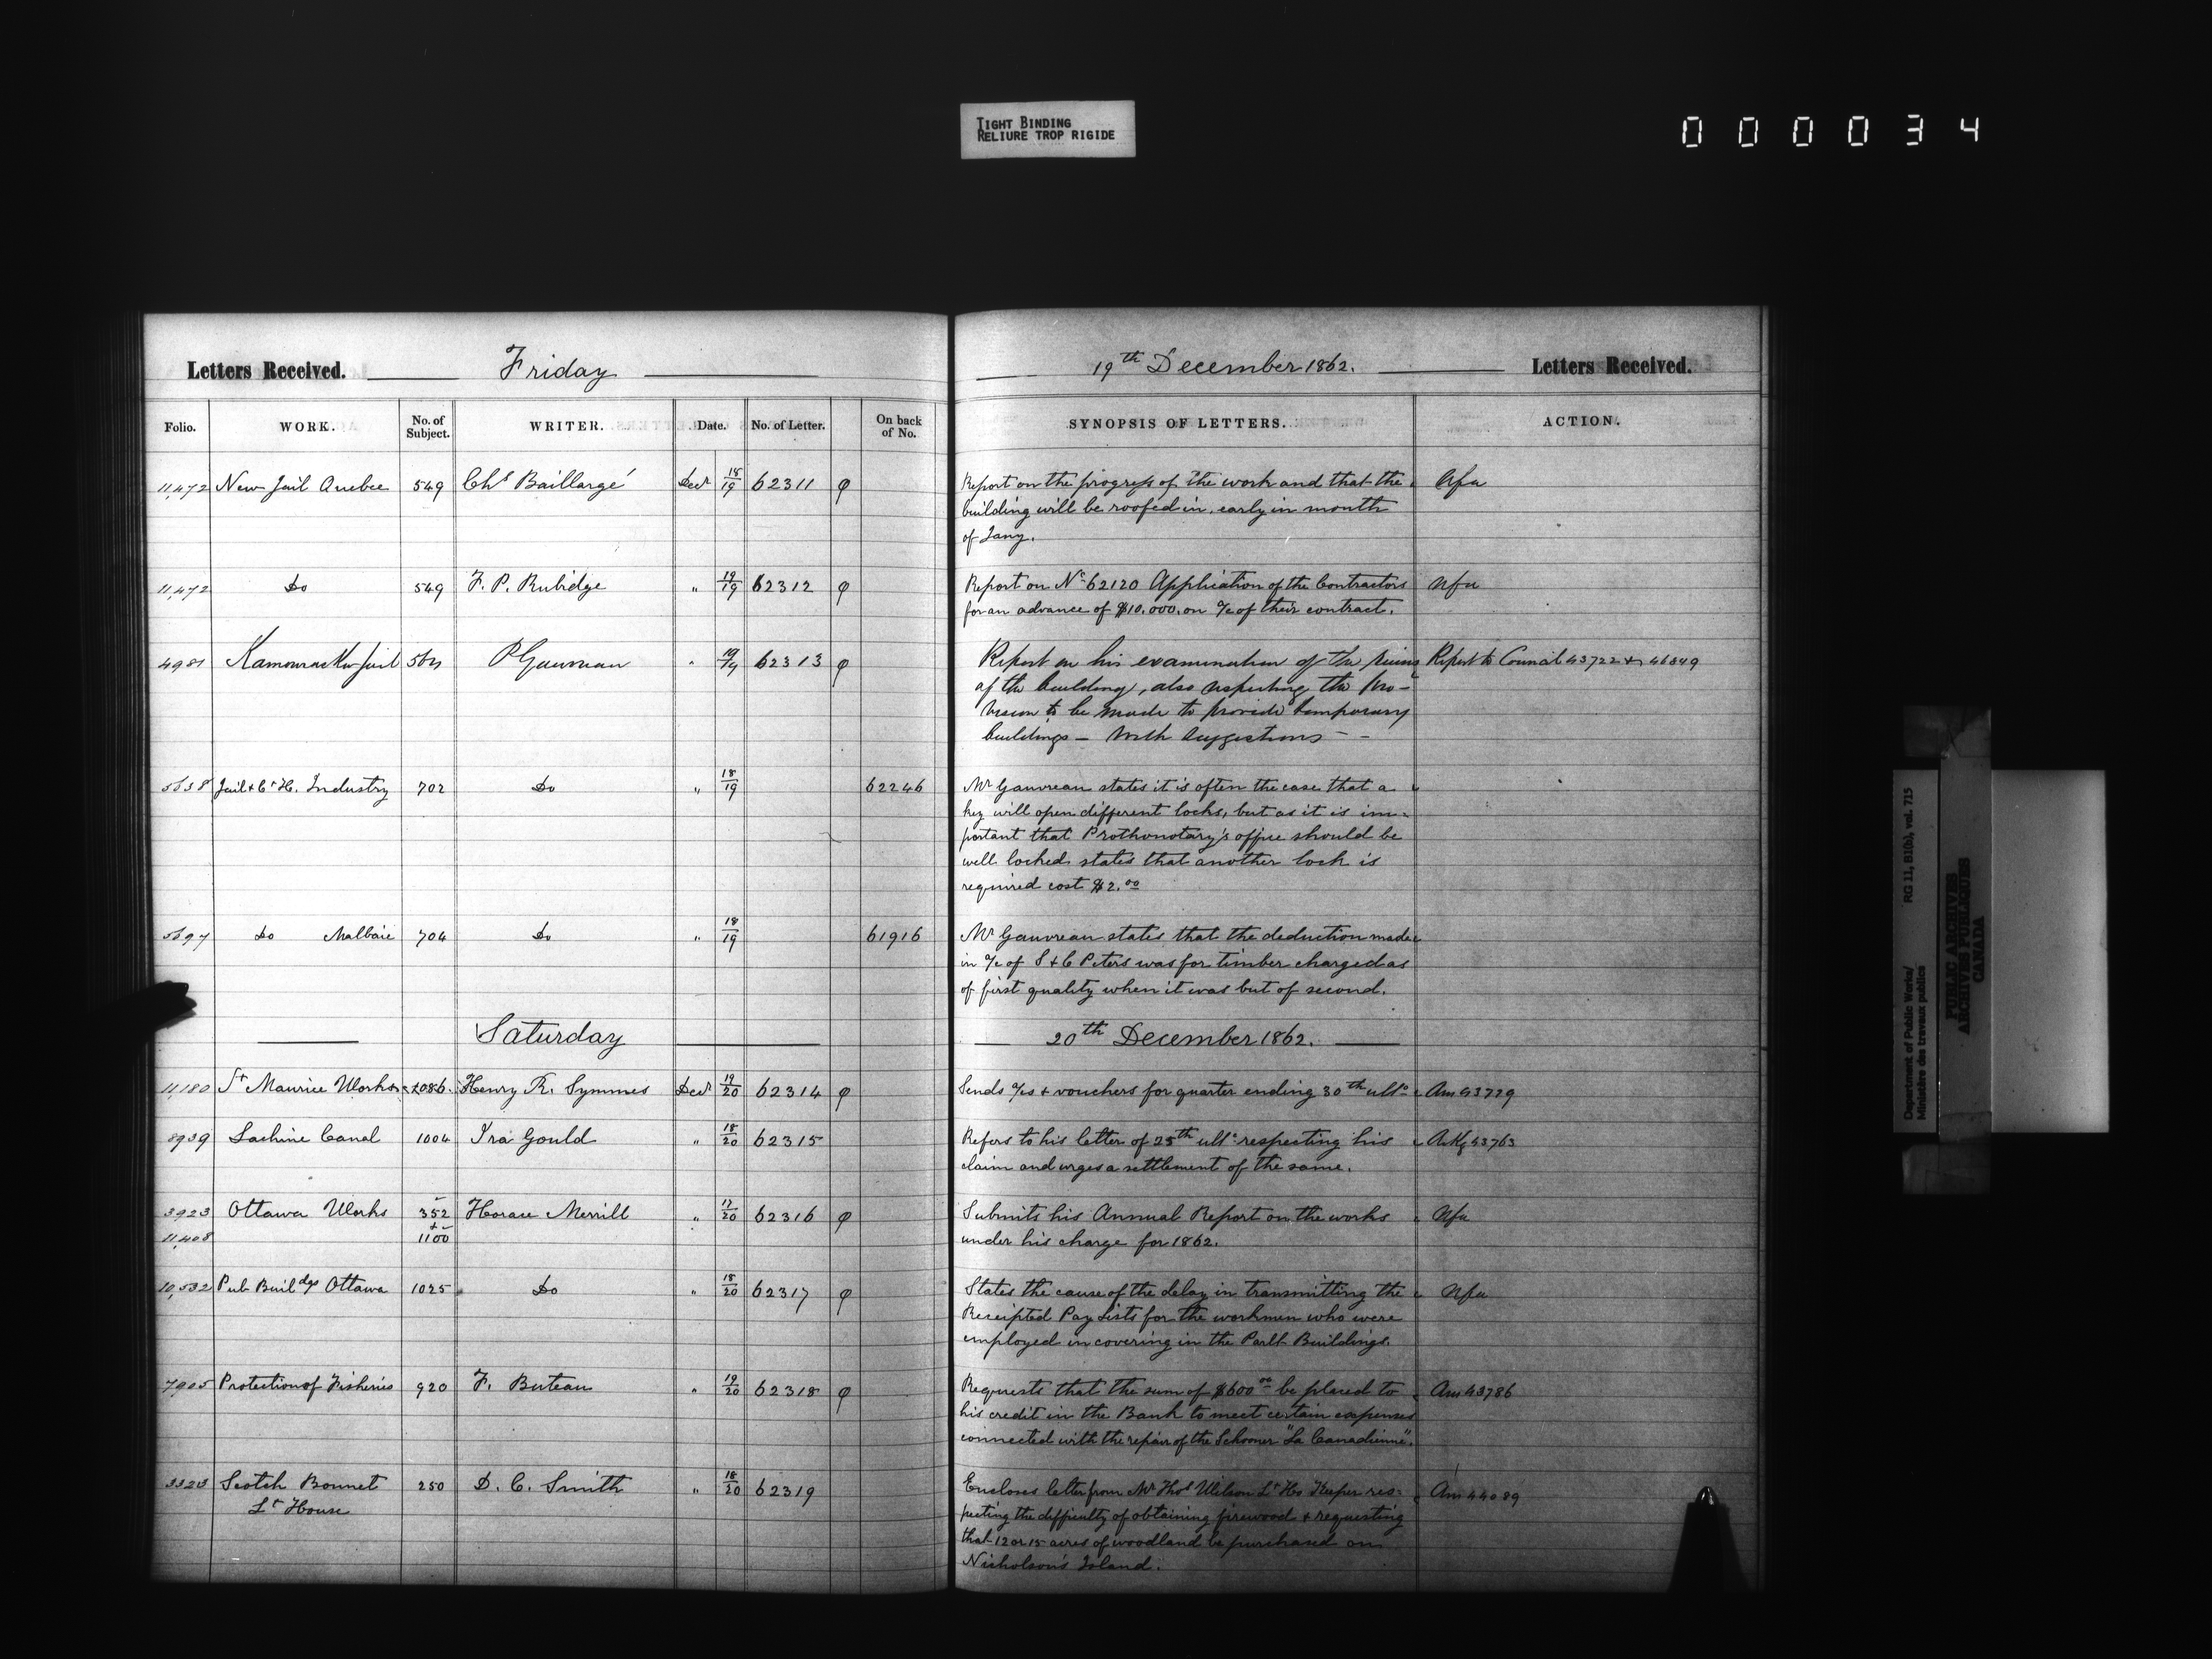 TIGHT BINDING
RELIURE TROP RIGIDE
000034
Letters Received. Friday 19th December 1862. Letters Received.
Folio. WORK. No. of Subject. WRITER. Date. No. of Letter. On back of No. SYNOPSIS OF LETTERS. ACTION.
11,472 New Jail Quebec 549 Chs Baillargé Decr 18/19 62311 φ Report on the progress of the work and that the Nfa
building will be roofed in, early in month
of Jany.
11,472 Do 549 F. P. Rubidge " 19/19 62312 φ Report on No 62120 Application of the Contractors Nfa
for an advance of $10.000. on a/c of their contract.
4981 Kamouraska Jail P Gauvreau " 19/19 62313 φ Report on his examination of the ruins Report to Council 43722 & 46349
of the building, also respecting the pro-
vision to be made to provide temporary
buildings — With suggestions — -
5638 Jail & Ct H. Industry 702 Do " 18/19 62246 Mr Gauvreau states it is often the case that a
key will open different locks, but as it is im-
portant that Prothonotary's office should be
well locked states that another lock is
required cost $2.00
5697 Do Malbaie 704 Do " 18/19 61916 Mr Gauvreau states that the deduction made
in a/c of S & C Peters was for timber charged as
of first quality when it was but of second.
Saturday 20th December 1862.
11,180 St Maurice Works 1086 Henry R. Symmes Decr 19/20 62314 φ Sends a/cs & vouchers for quarter ending 30th ulto Ans 43729
8939 Lachine Canal 1004 Ira Gould " 18/20 62315 Refers to his letter of 25th ulto respecting his Akg 43763
claim and urges a settlement of the same.
3923 Ottawa Works 352 Horace Merrill " 17/20 62316 φ Submits his Annual Report on the works Nfa
11,408 & 1100 under his charge for 1862.
10,532 Pub Buildgs Ottawa 1025 Do " 18/20 62317 φ States the cause of the delay in transmitting the Nfa
Receipted Pay Lists for the workmen who were
employed in covering in the Parlt Buildings.
7905 Protection of Fisheries 920 F. Buteau " 19/20 62318 φ Requests that the sum of $600.00 be placed to Ans 43786
his credit in the Bank to meet certain expenses
connected with the repair of the Schooner "La Canadienne".
3323 Scotch Bonnet 250 D. C. Smith " 18/20 62319 Encloses letter from Mr Thos Wilson Lt Ho Keeper res- Ans 44089
Lt House pecting the difficulty of obtaining firewood & requesting
that 12 or 15 acres of woodland be purchased on
Nicholson's Island.
Department of Public Works/ RG 11, B1(b), vol. 715
Ministère des travaux publics
PUBLIC ARCHIVES
ARCHIVES PUBLIQUES
CANADA